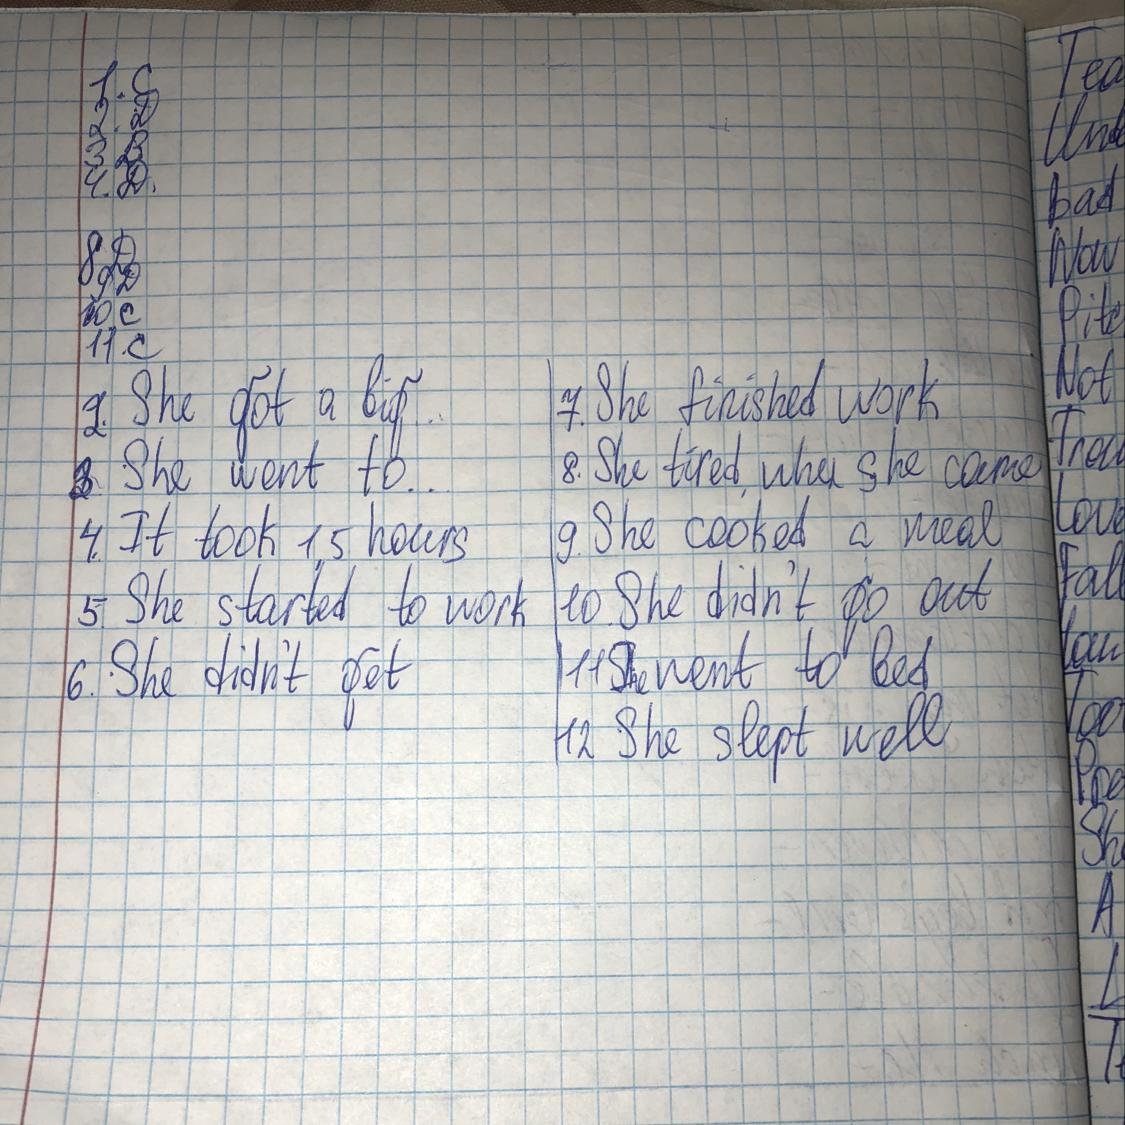 1. C
2. D
3. B
4. D.
8 D
9 D
10 C
11. C
2. She got a big...
3. She went to...
4. It took 15 hours
5. She started to work
6. She didn't get
7. She finished work
8. She tired, when she came
9. She cooked a meal
10. She didn't go out
11 She went to bed
12 She slept well
Bad
Now
Not
Love
Fall
A